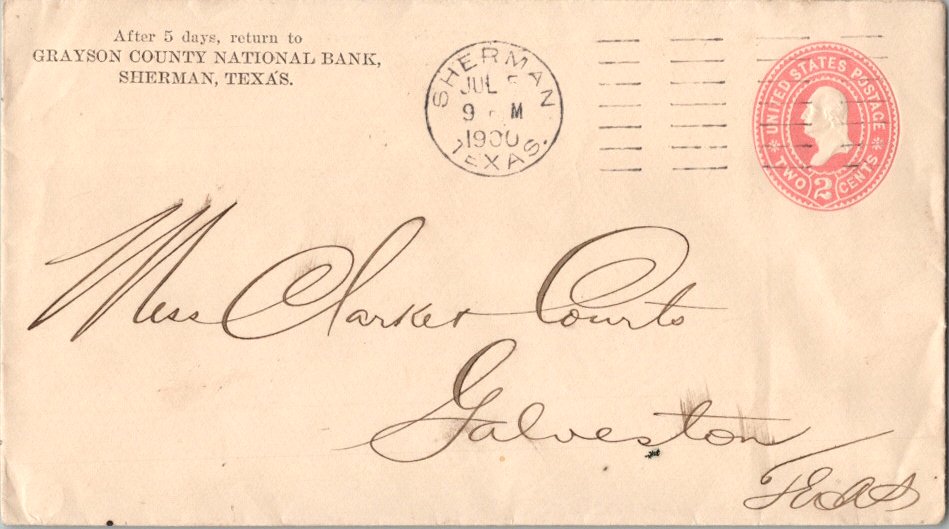 After 5 days, return to
GRAYSON COUNTY NATIONAL BANK,
SHERMAN, TEXAS.
SHERMAN
JUL
9 M
1900
TEXAS.
UNITED STATES POSTAGE
TWO 2 CENTS
Mess Clarke & Courts
Galveston
Texas